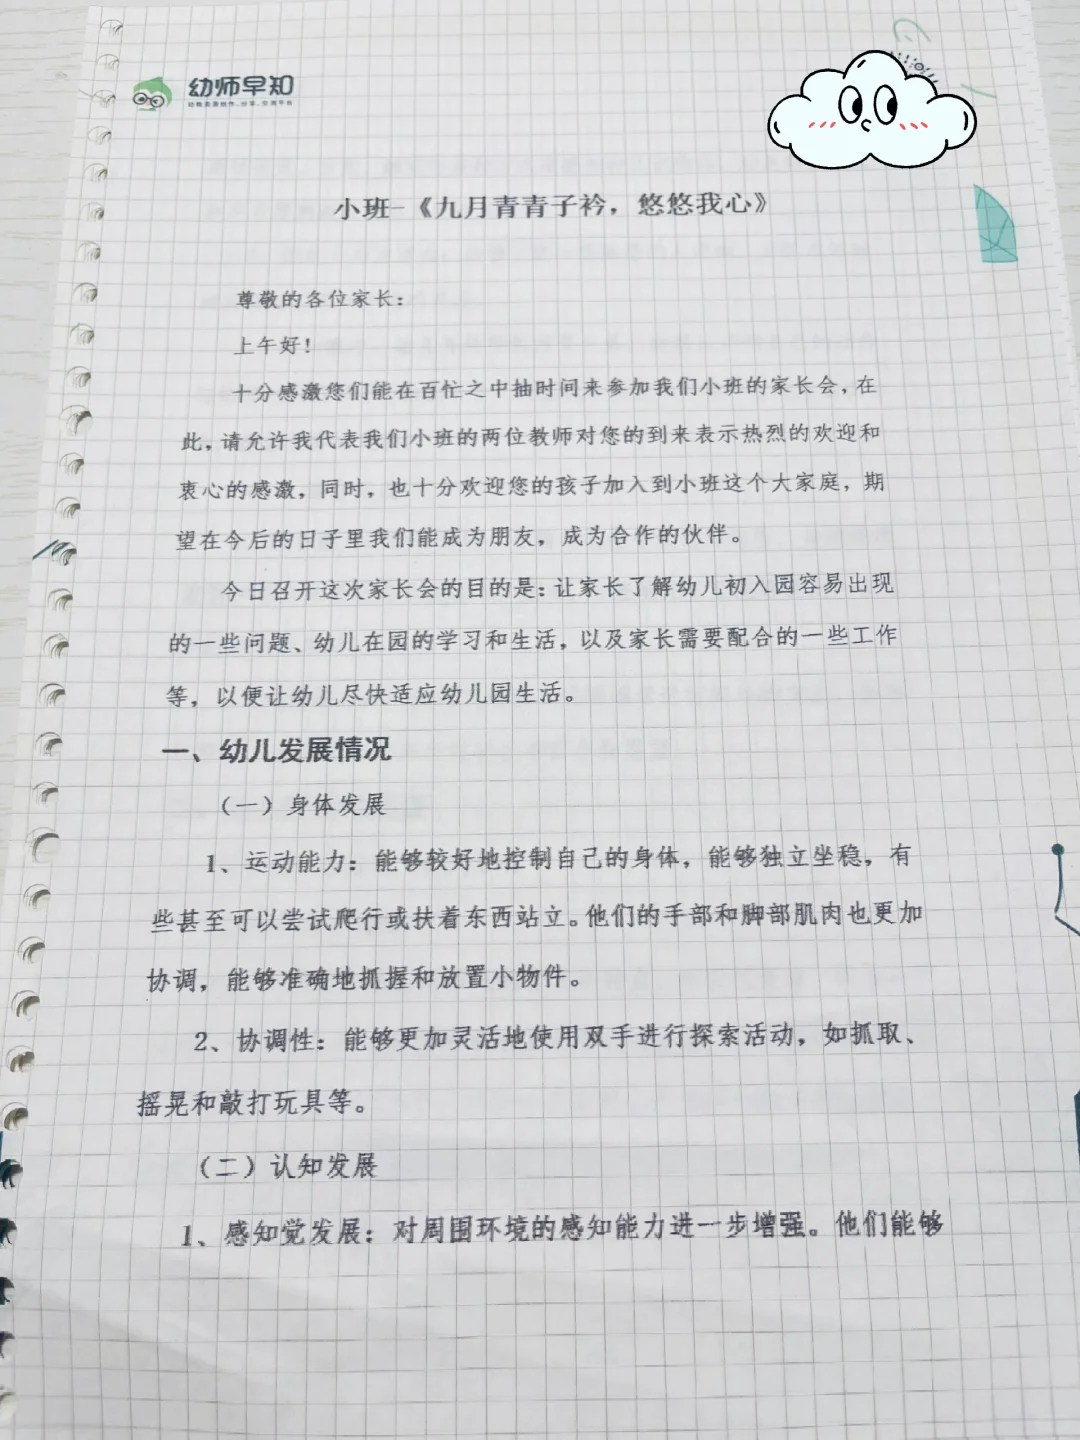 幼师早知
小班-《九月青青子衿，悠悠我心》
尊敬的各位家长：
上午好！
十分感激您们能在百忙之中抽时间来参加我们小班的家长会，在
此，请允许我代表我们小班的两位教师对您的到来表示热烈的欢迎和
衷心的感激，同时，也十分欢迎您的孩子加入到小班这个大家庭，期
望在今后的日子里我们能成为朋友，成为合作的伙伴。
今日召开这次家长会的目的是：让家长了解幼儿初入园容易出现
的一些问题、幼儿在园的学习和生活，以及家长需要配合的一些工作
等，以便让幼儿尽快适应幼儿园生活。
一、幼儿发展情况
（一）身体发展
1、运动能力：能够较好地控制自己的身体，能够独立坐稳，有
些甚至可以尝试爬行或扶着东西站立。他们的手部和脚部肌肉也更加
协调，能够准确地抓握和放置小物件。
2、协调性：能够更加灵活地使用双手进行探索活动，如抓取、
摇晃和敲打玩具等。
（二）认知发展
1、感知觉发展：对周围环境的感知能力进一步增强。他们能够